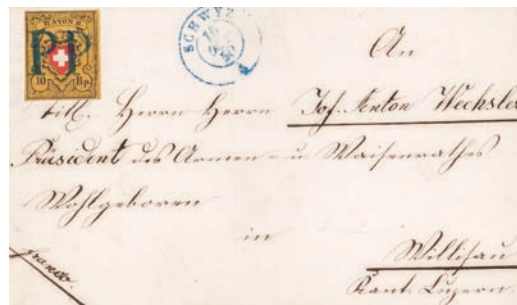 RAYON II.
PP
10 Rp.
SCHWYZ
An
Titl. Herrn Herrn Jos. Anton Wechsler
Präsident des Armen- u. Waisenrathes
Wohlgeboren
in
Willisau
Kant. Luzern.
franco.